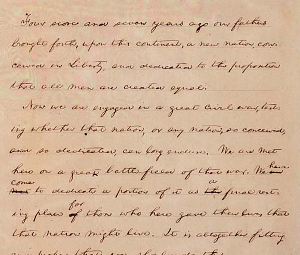 Four score and seven years ago our fathers
brought forth, upon this continent, a new nation, con-
ceived in Liberty, and dedicated to the proposition
that all men are created equal.
Now we are engaged in a great civil war, test-
ing whether that nation, or any nation, so conceived,
and so dedicated, can long endure. We are met
here on a great battle field of that war. We have
come to dedicate a portion of it as a final rest-
ing place for those who here gave their lives that
that nation might live. It is altogether fitting
and proper that we should do this.